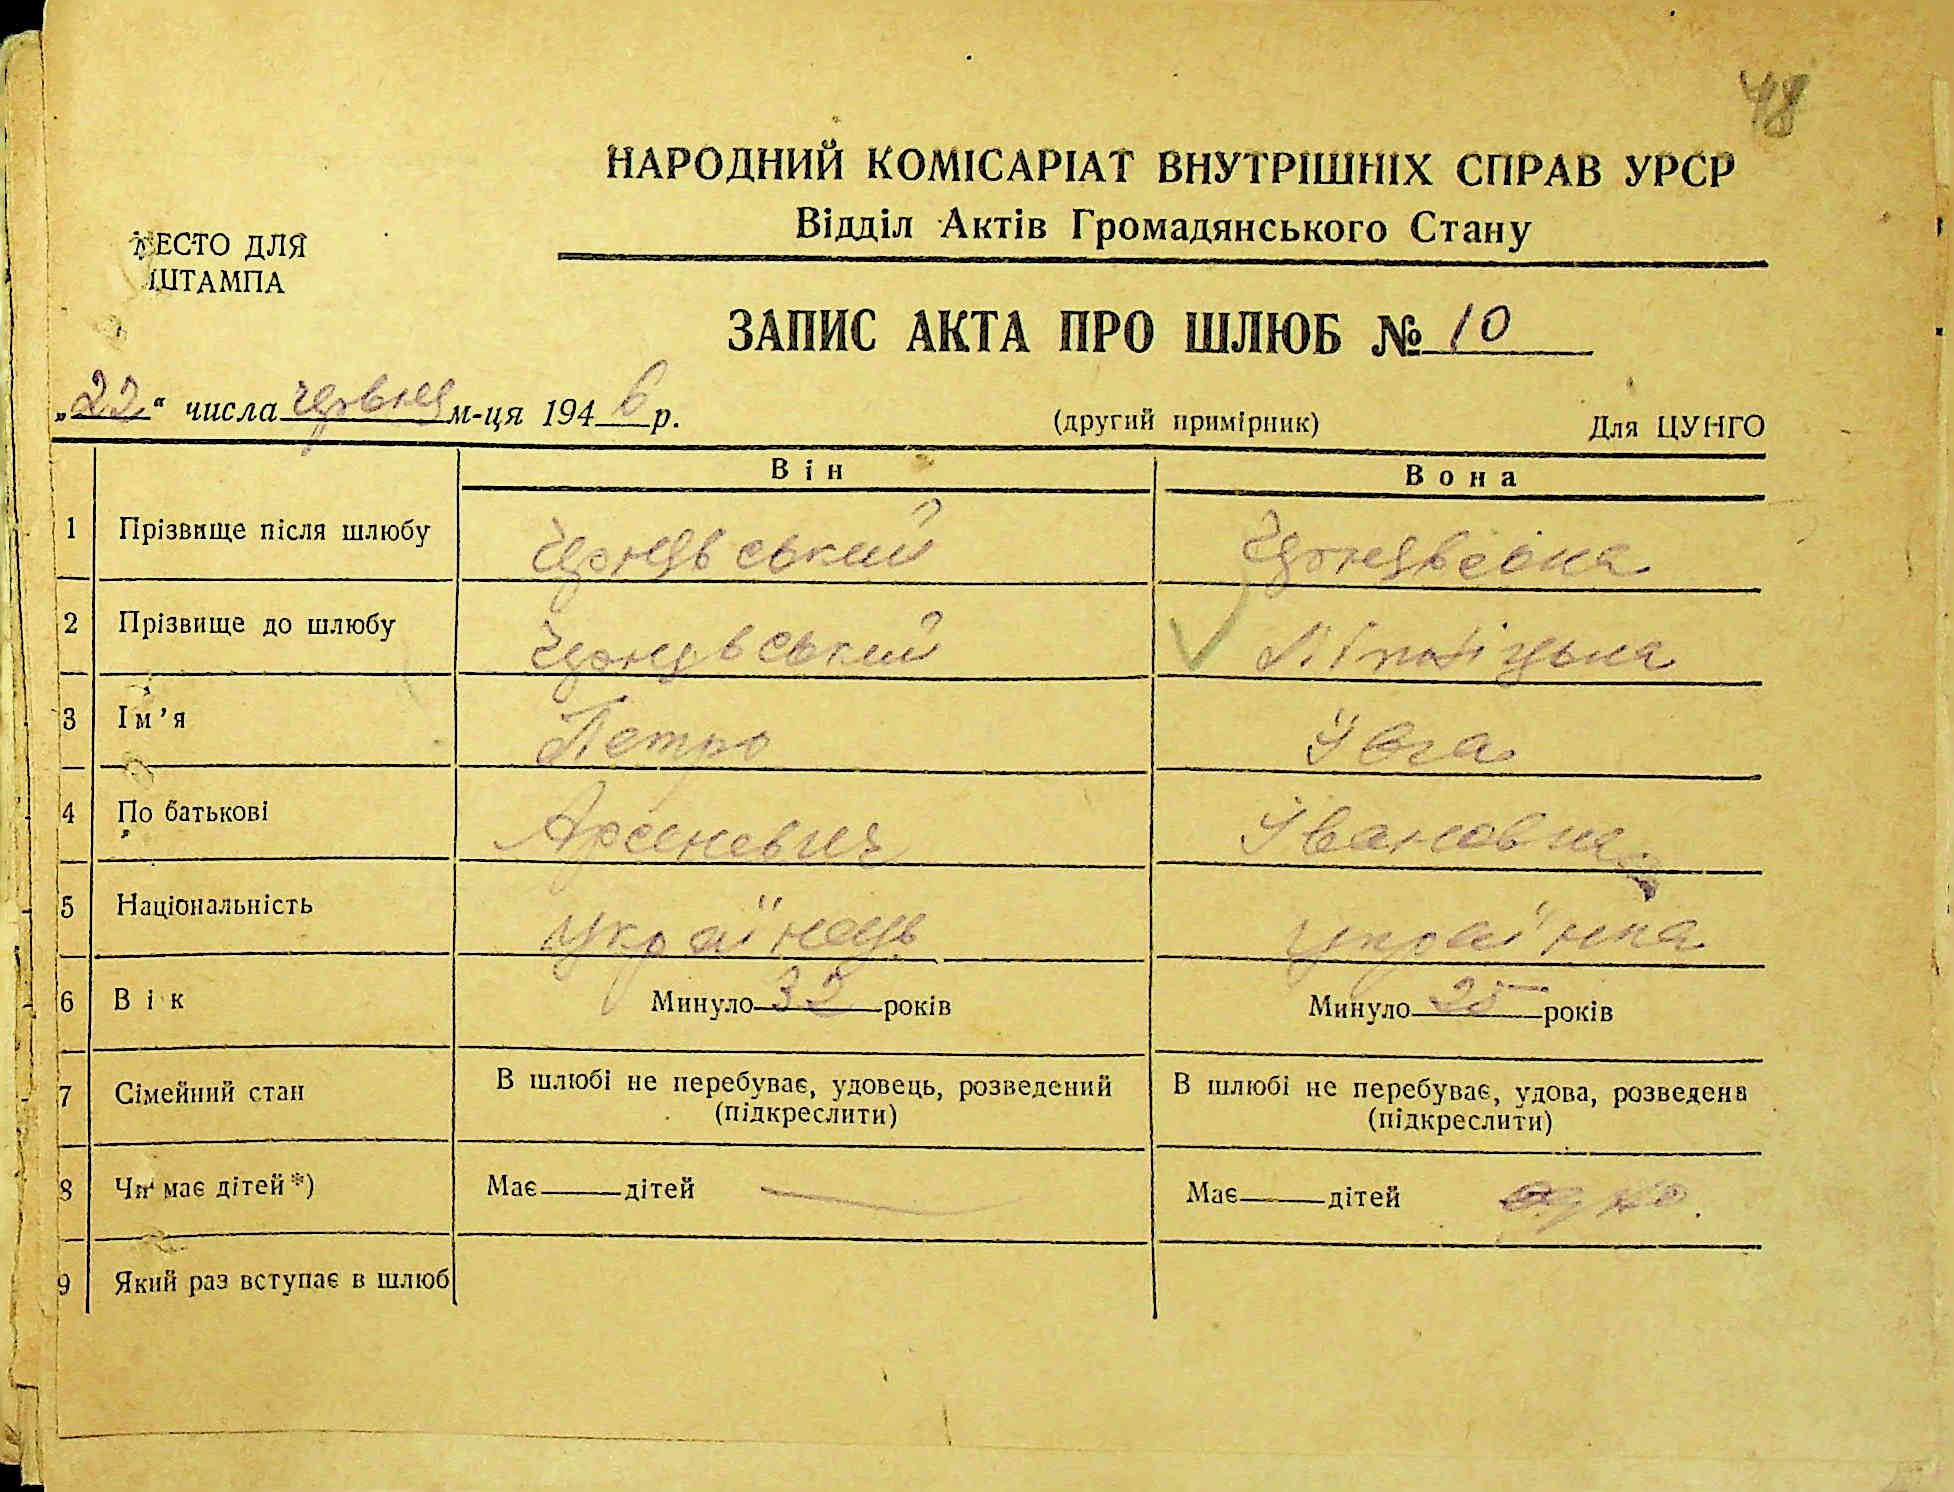 48
НАРОДНИЙ КОМІСАРІАТ ВНУТРІШНІХ СПРАВ УРСР
Відділ Актів Громадянського Стану
МЕСТО ДЛЯ
ШТАМПА
ЗАПИС АКТА ПРО ШЛЮБ № 10
„22“ числа червня м-ця 1946 р.
(другий примірник) Для ЦУНГО
Він Вона
1 Прізвище після шлюбу
2 Прізвище до шлюбу
3 Ім’я Петро Івга
4 По батькові Арсеневич Івановна
5 Національність українець українка
6 Вік Минуло 32 років Минуло 25 років
7 Сімейний стан В шлюбі не перебуває, удовець, розведений В шлюбі не перебуває, удова, розведена
(підкреслити) (підкреслити)
8 Чи має дітей*) Має дітей — Має дітей одно.
9 Який раз вступає в шлюб